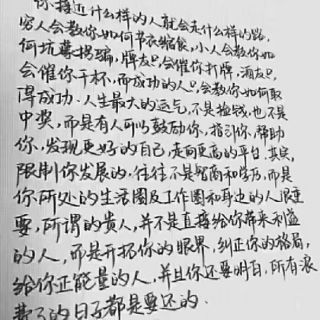 你接近什么样的人就会走什么样的路,
穷人会教你如何节衣缩食,小人会教你如
何坑蒙拐骗,牌友只会催你打牌,酒友只
会催你干杯,而成功的人只会教你如何取
得成功.人生最大的运气,不是捡钱,也不是
中奖,而是有人可以鼓励你,指引你,帮助
你,发现更好的自己,走向更高的平台.其实,
限制你发展的,往往不是智商和学历,而是
你所处的生活圈及工作圈和身边的人很重
要,所谓的贵人,并不是直接给你带来利益
的人,而是开拓你的眼界,纠正你的格局,
给你正能量的人,并且你还要明白,所有浪
费了的日子都是要还的.